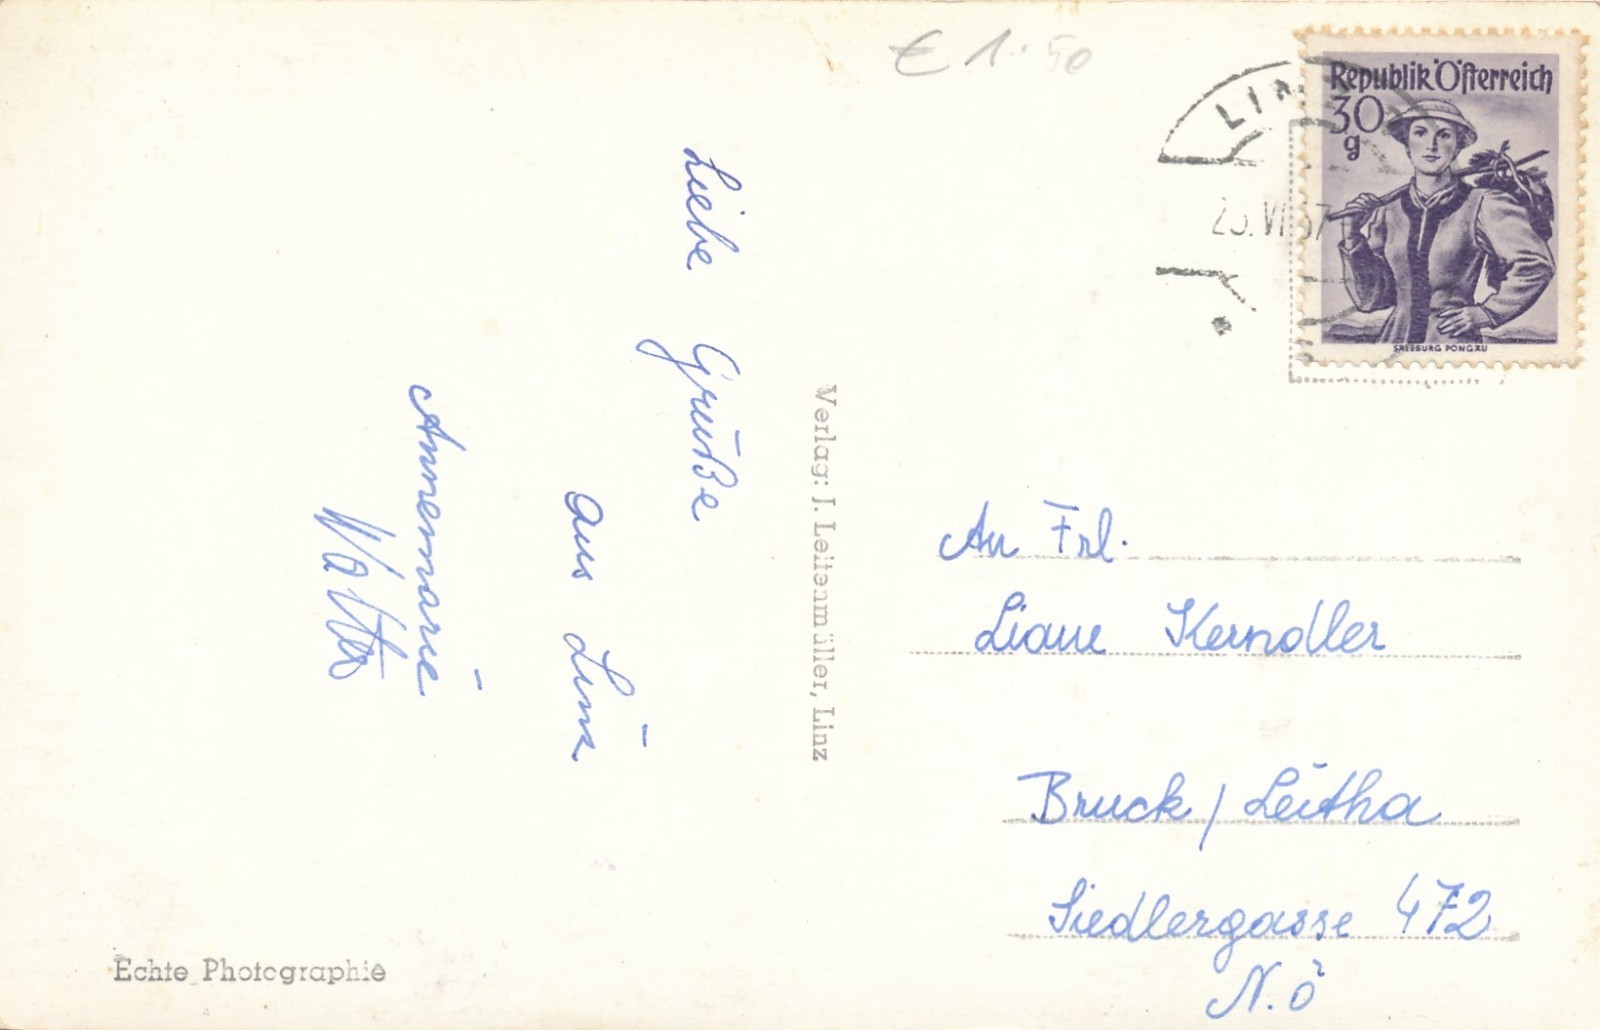 € 1.50
Republik Österreich
30
g
SALZBURG PONGAU
LIN
VI 57
Liebe Grüße
aus Linz
Annemarie
Walter
Verlag: J. Leitenmüller, Linz
An Frl.
Liane Kerndler
Bruck / Leitha
Siedlergasse 472
N.Ö
Echte Photographie